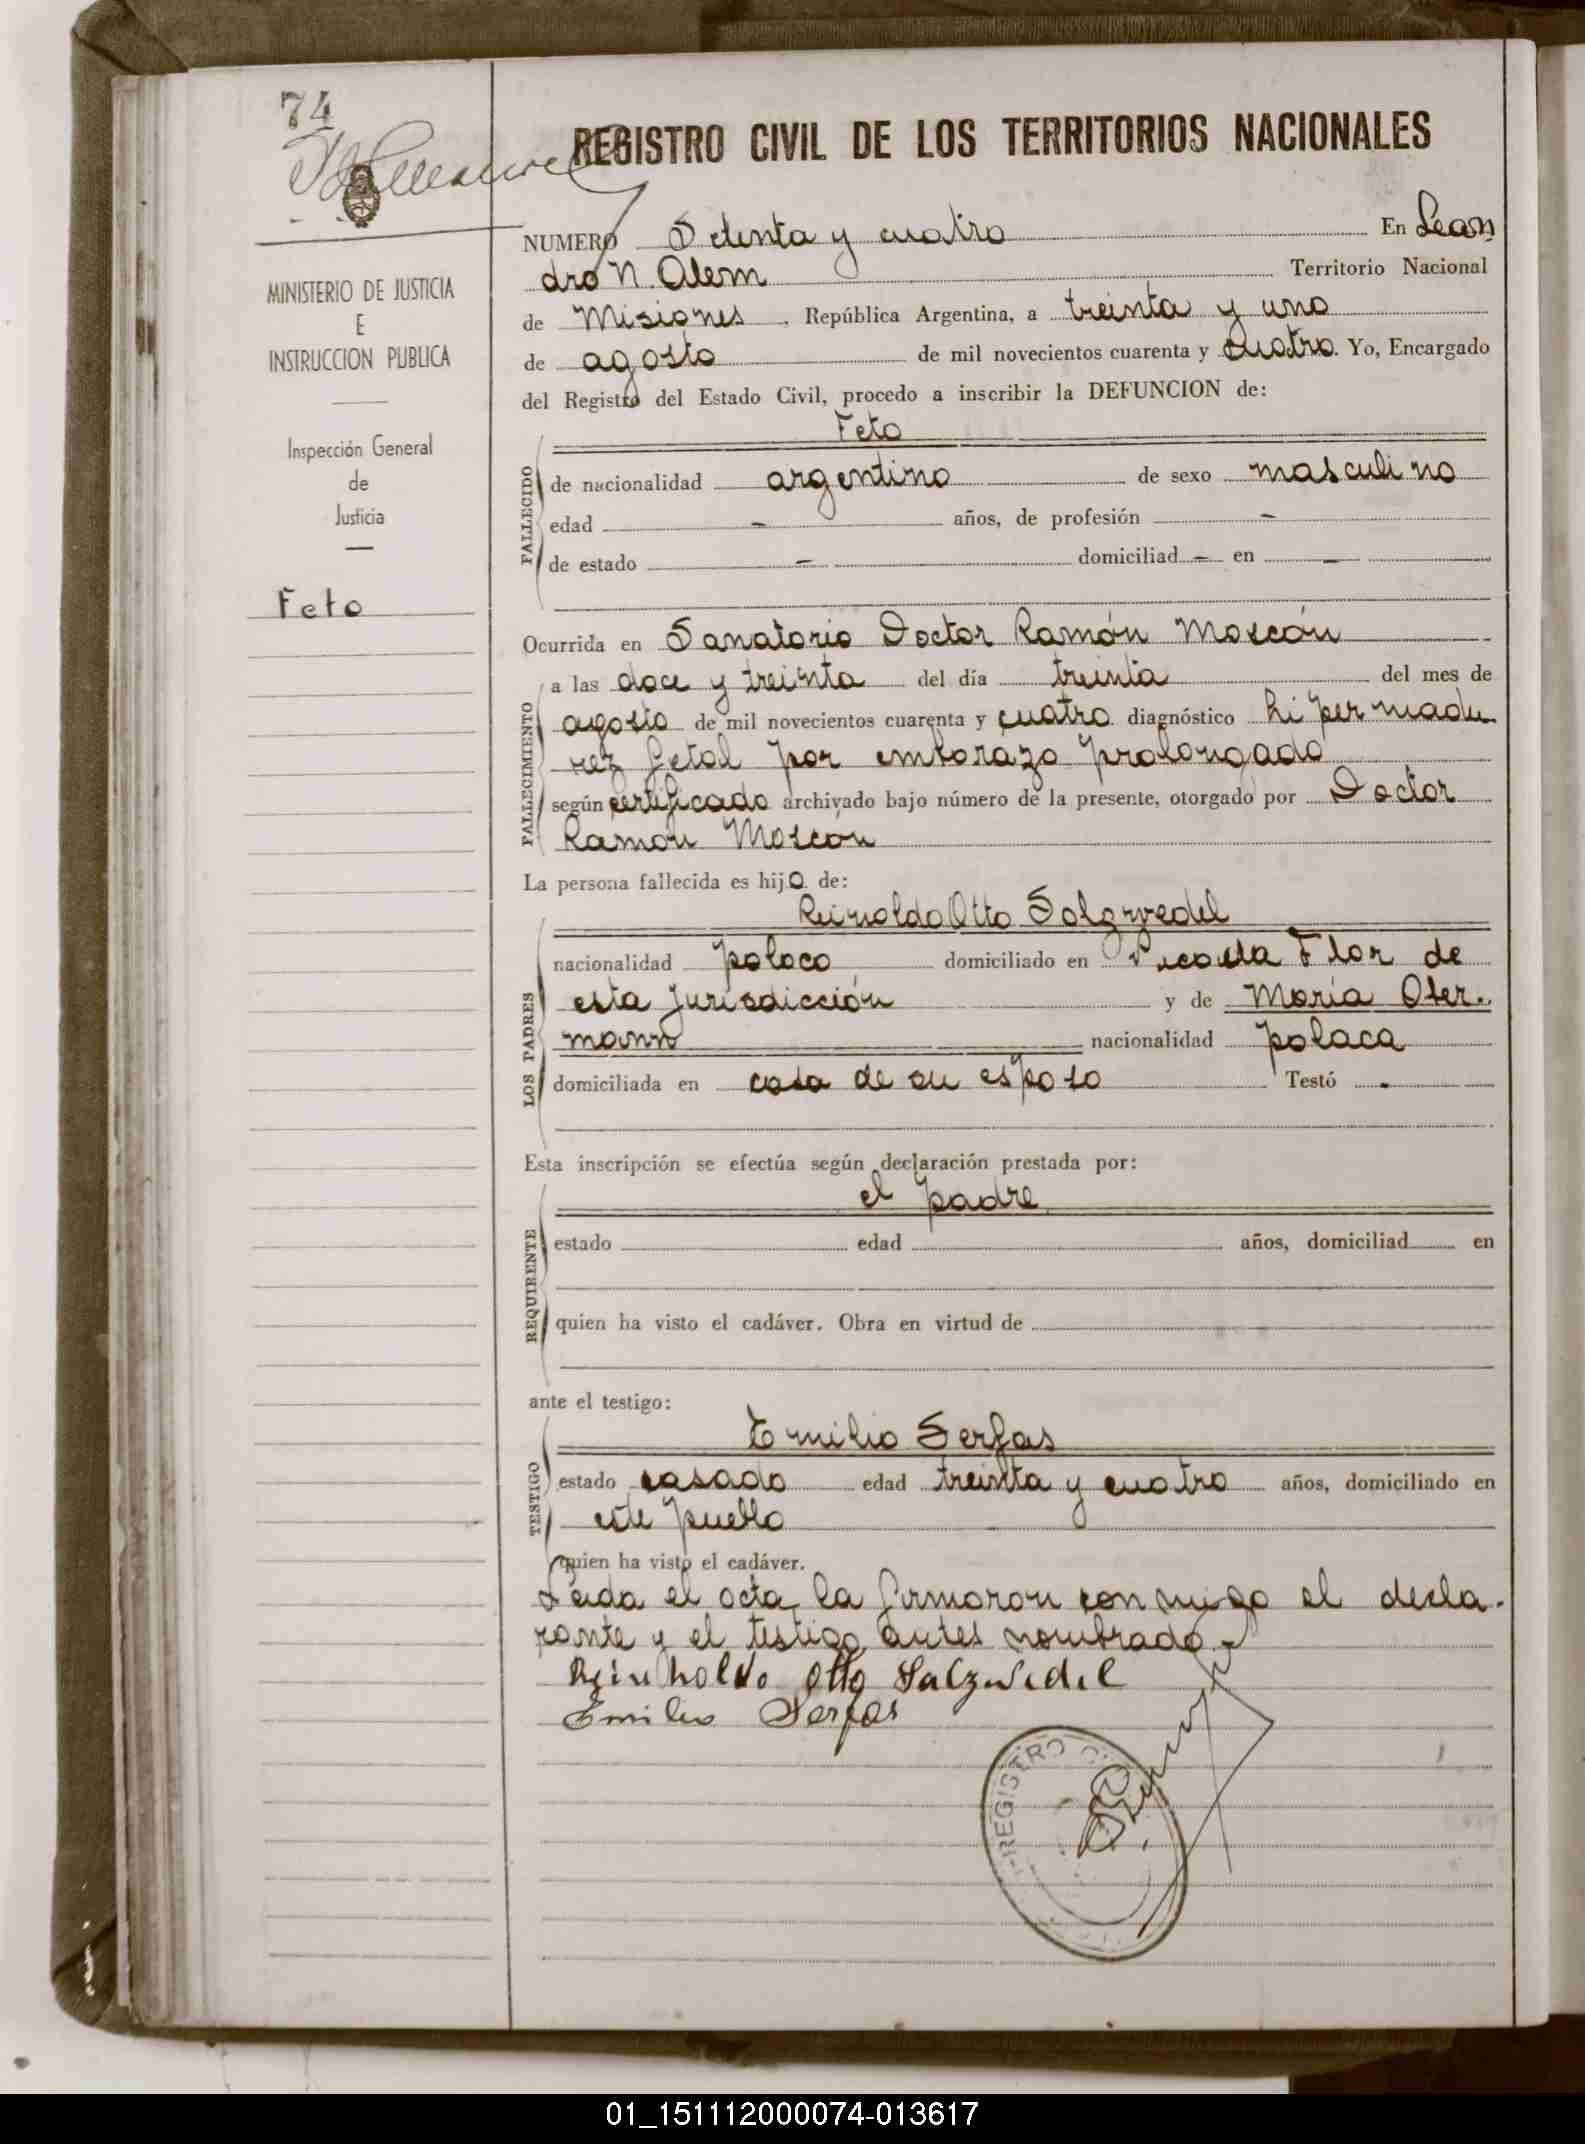 74
REGISTRO CIVIL DE LOS TERRITORIOS NACIONALES
NUMERO Setenta y cuatro En Lean
dro N. Alem Territorio Nacional
de Misiones, República Argentina, a treinta y uno
de agosto de mil novecientos cuarenta y cuatro. Yo, Encargado
del Registro del Estado Civil, procedo a inscribir la DEFUNCION de:
MINISTERIO DE JUSTICIA
E
INSTRUCCION PUBLICA
Inspección General
de
Justicia
Feto
FALLECIDO
Feto
de nacionalidad argentino de sexo masculino
edad - años, de profesión -
de estado - domiciliad - en -
Ocurrida en Sanatorio Doctor Ramón Moscón
FALLECIMIENTO
a las doce y treinta del día treinta del mes de
agosto de mil novecientos cuarenta y cuatro diagnóstico hipermadu
rez fetal por embarazo prolongado
según certificado archivado bajo número de la presente, otorgado por Doctor
Ramón Moscón
La persona fallecida es hijo de:
LOS PADRES
Reinoldo Otto Salzwedel
nacionalidad polaco domiciliado en Picada Flor de
esta jurisdicción y de María Ober-
mann nacionalidad polaca
domiciliada en casa de su esposo Testó -
Esta inscripción se efectúa según declaración prestada por:
REQUIRENTE
el padre
estado edad años, domiciliad en
quien ha visto el cadáver. Obra en virtud de
ante el testigo:
TESTIGO
Emilio Serfas
estado casado edad treinta y cuatro años, domiciliado en
este pueblo
quien ha visto el cadáver.
Leida el acta la firmaron conmigo el decla-
rante y el testigo antes nombrado.-
Reinholdo Otto Salzwedel
Emilio Serfas
REGISTRO
01_151112000074-013617